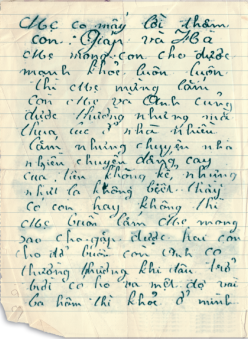 Mẹ có mấy lời thăm
con: Giáp và Hà
Mẹ mong con cho được
mạnh khoẻ luôn luôn
thì Mẹ mừng lắm
con Mẹ và Anh cũng
được thường nhưng mà
thua cực ở nhà nhiều
lắm nhưng chuyện nhà
nhiều chuyện đắng cay
của tiền không kể, nhưng
nhứt là không biết thầy
có con hay không thì
Mẹ buồn lắm Mẹ mong
sao cho gặp được hai con
cho đỡ buồn con anh có
thường thường khi đau trở
trời có ho và mệt độ vài
ba hôm thì khoẻ ở mình